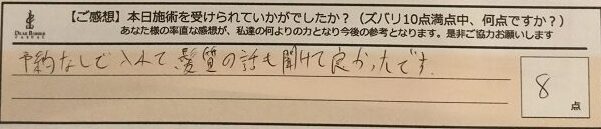 【ご感想】本日施術を受けられていかがでしたか？（ズバリ10点満点中、何点ですか？）
あなた様の率直な感想が、私達の何よりの力となり今後の参考となります。是非ご協力お願いします
予約なしで入れて髪質の話も聞けて良かったです。
8
点